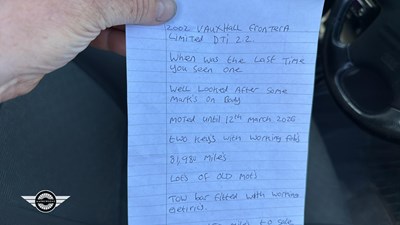 2002 VAUXHALL FRONTERA
Limited DTi 2.2.
When was the Last Time
you seen one
Well Looked After Some
Marks on Body
MOTED until 12th March 2026
two keys with working fobs
81,980 miles
Lots of OLD Mots
Tow bar fitted with working
to sale